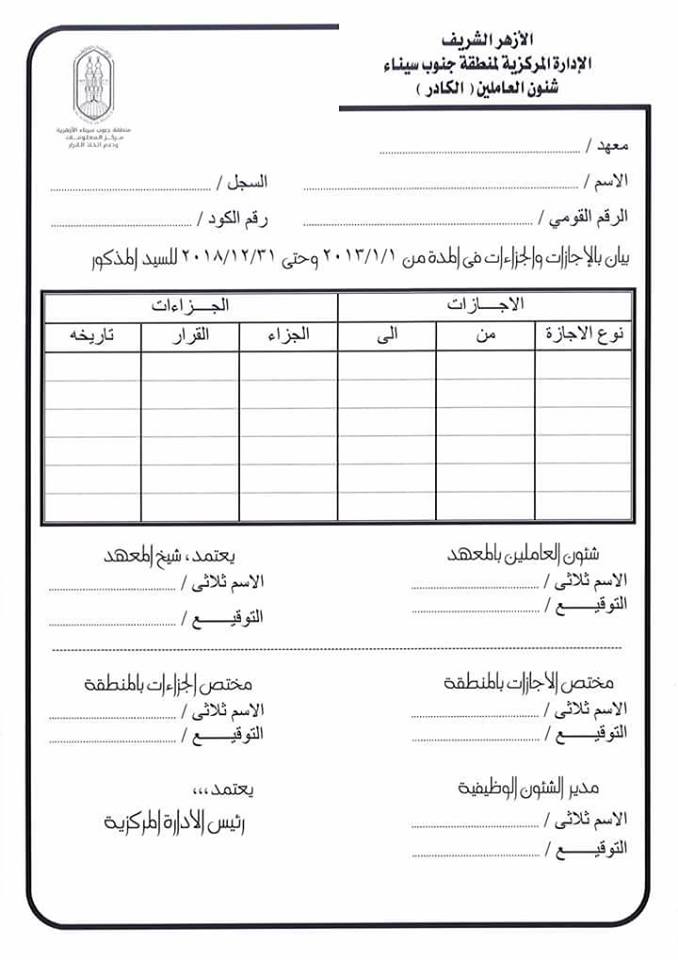 الأزهر الشريف
الإدارة المركزية لمنطقة جنوب سيناء
شئون العاملين ( الكادر )
منطقة جنوب سيناء الأزهرية
مركز المعلومات
ودعم اتخاذ القرار
معهد /
الاسم / السجل /
الرقم القومي / رقم الكود /
بيان بالإجازات والجزاءات فى المدة من ٢٠١٣/١/١ وحتى ٢٠١٨/١٢/٣١ للسيد المذكور
الاجازات الجزاءات
نوع الاجازة من الى الجزاء القرار تاريخه
شئون العاملين بالمعهد يعتمد ، شيخ المعهد
الاسم ثلاثى / الاسم ثلاثى /
التوقيع / التوقيع /
مختص الأجازات بالمنطقة مختص الجزاءات بالمنطقة
الاسم ثلاثى / الاسم ثلاثى /
التوقيع / التوقيع /
مدير الشئون الوظيفية يعتمد ،،،
الاسم ثلاثى / رئيس الأدارة المركزية
التوقيع /